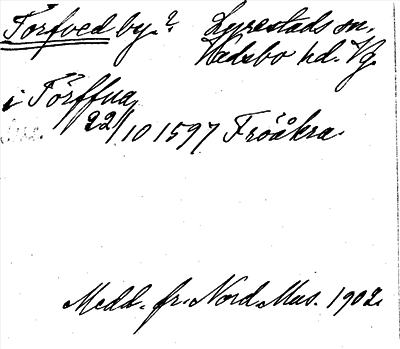 Torfved by.? Lyrestads sn,
Vadsbo hd. Vg.
i Törffua
22/10 1597 Fröåkra.
Medd. fr. Nord. Mus. 1902.